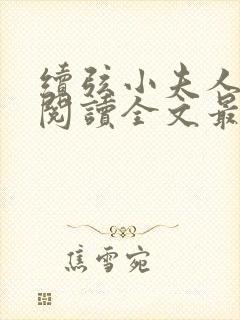 續弦小夫人
閱讀全文最
焦雪宛